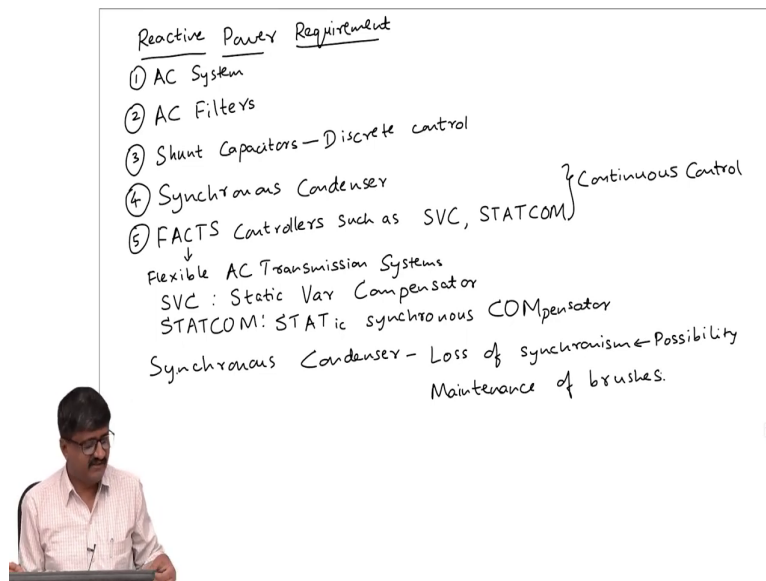 Reactive Power Requirement
① AC System
② AC Filters
③ Shunt Capacitors – Discrete control
④ Synchronous Condenser
⑤ FACTS Controllers such as SVC, STATCOM } Continuous Control
↓
Flexible AC Transmission Systems
SVC : Static Var Compensator
STATCOM: STATic synchronous COMpensator
Synchronous Condenser – Loss of synchronism ← Possibility
Maintenance of brushes.